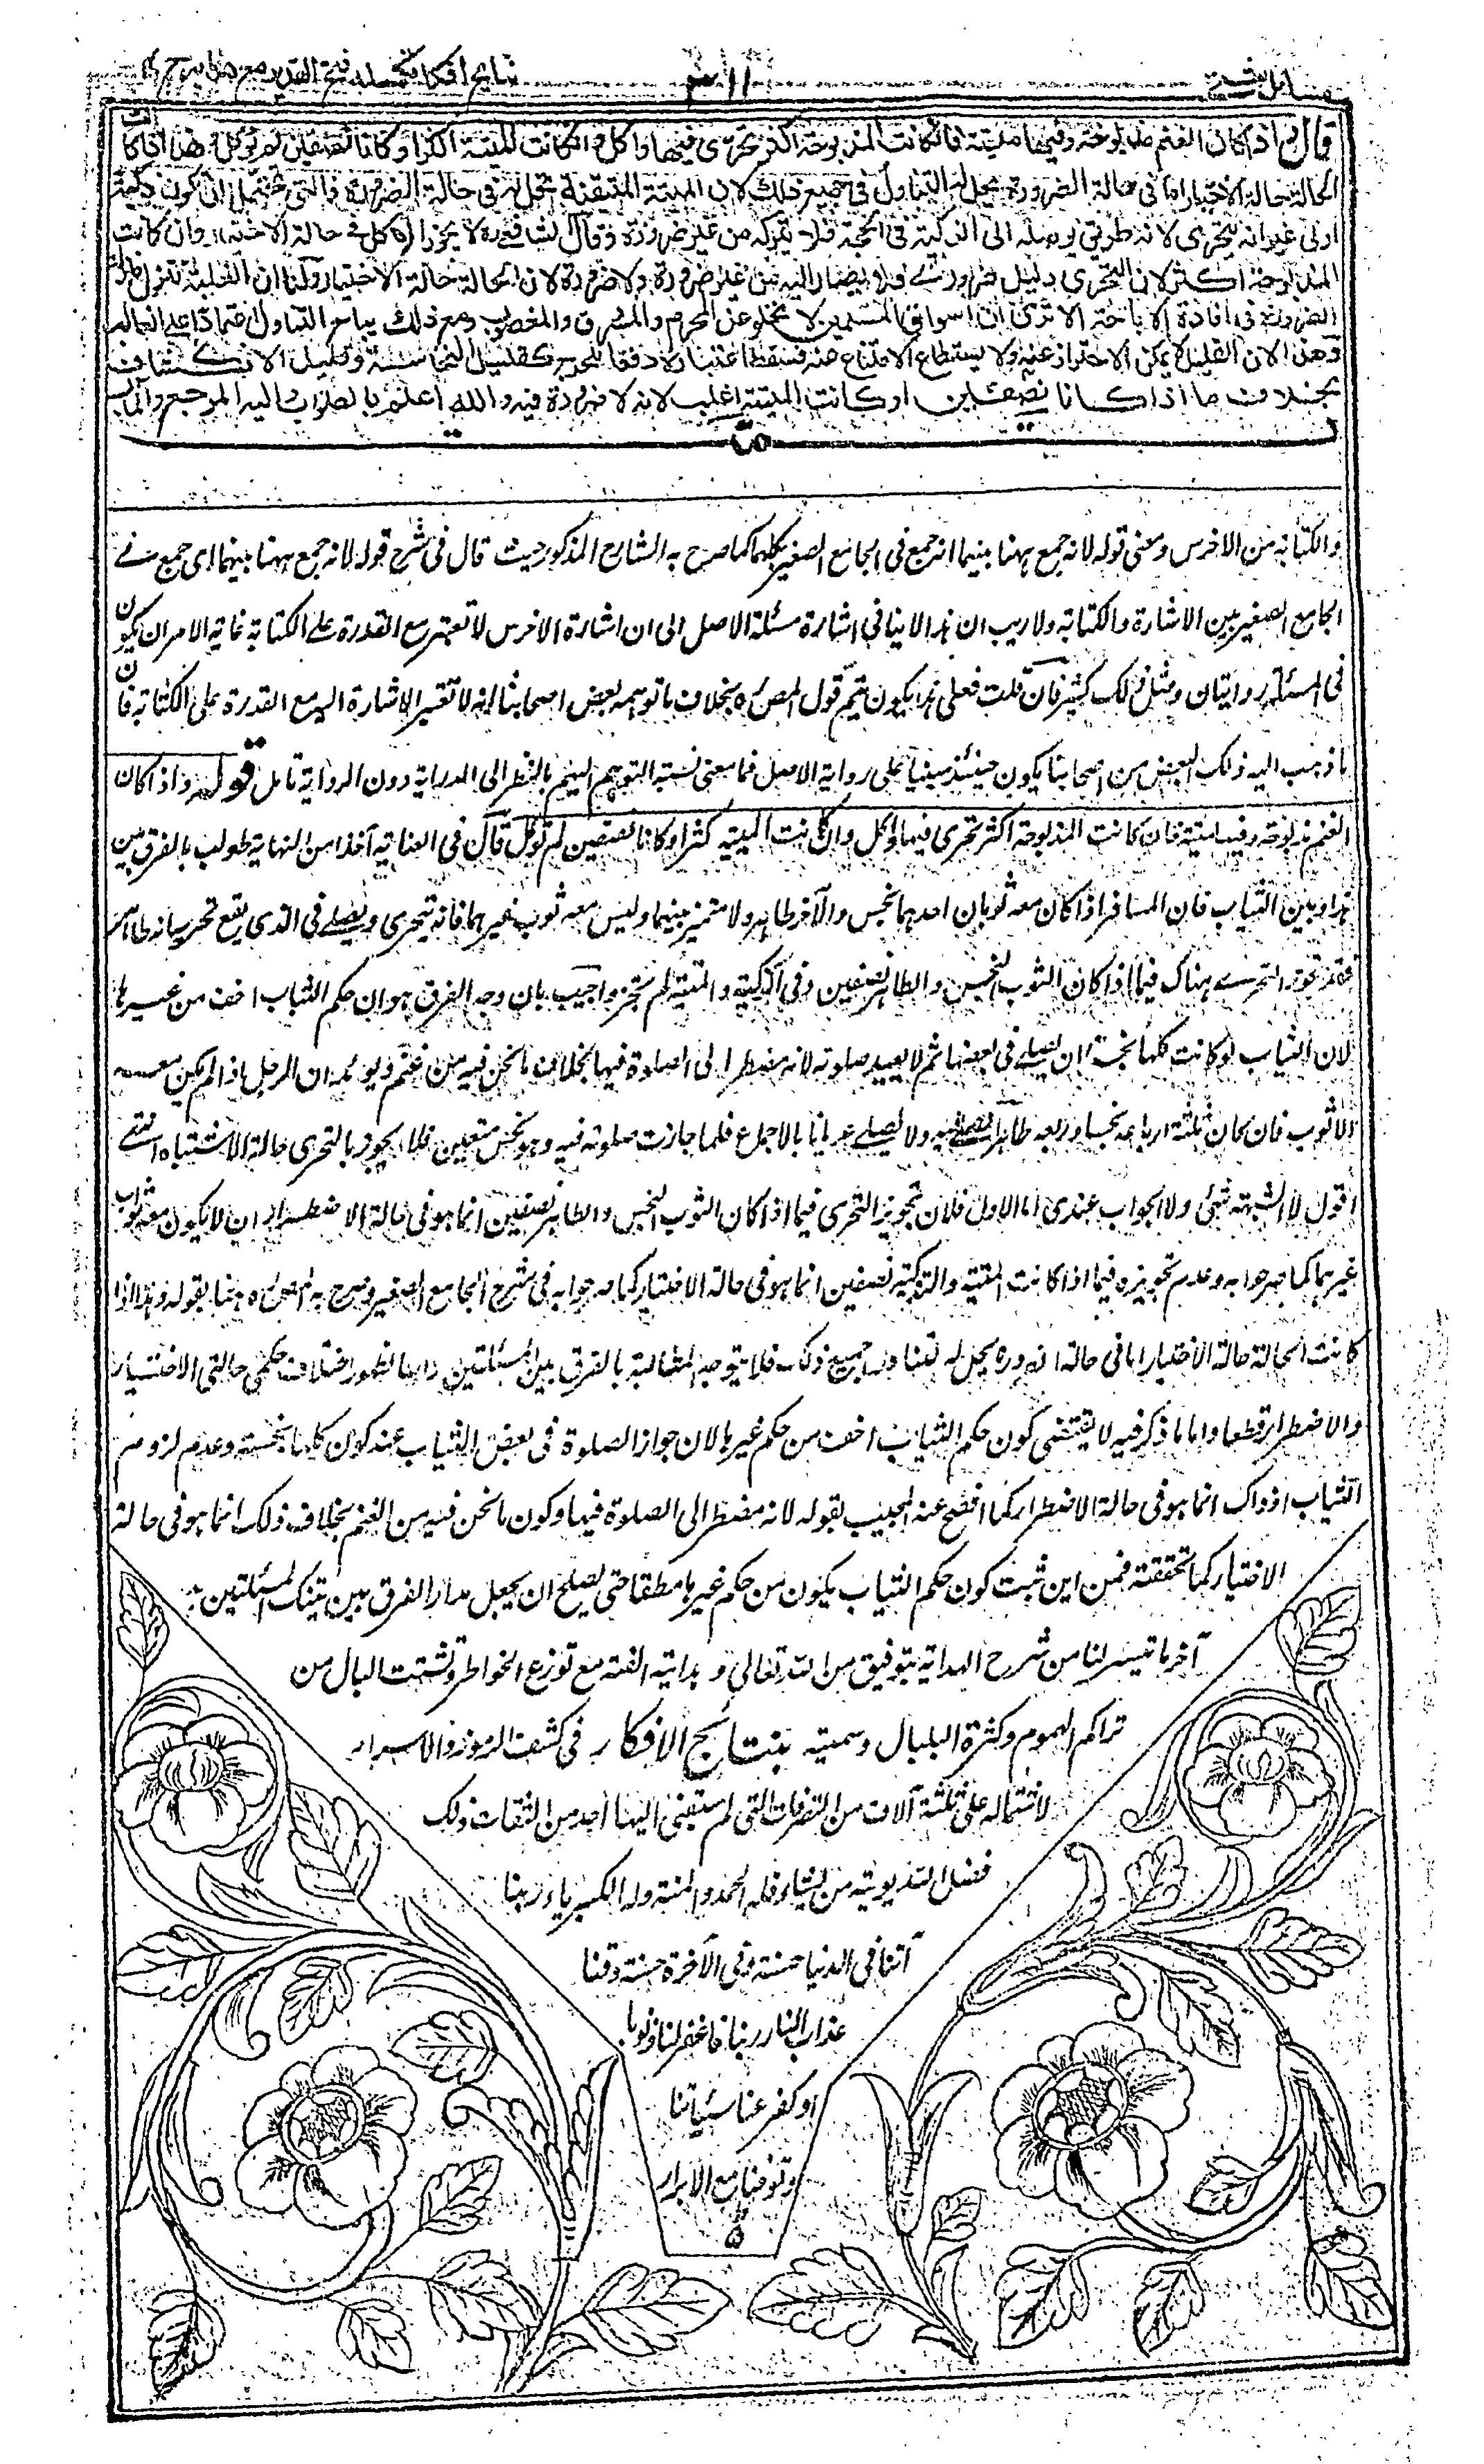 مسائل شتى ٣١١ نتايج افكار تكمله فتح القدير مع هدايه ج
قال واذا كان الغنم مذبوحة وفيها ميتة فان كانت المذبوحة اكثر تحرى فيها واكل وان كانت الميتة اكثر او كانا نصفين لم توكل وهذا اذا كانت
الحالة حالة الاختيار اما فى حالة الضرورة يحل له التناول فى جميع ذلك لان الميتة المتيقنة تحل له فى حالة الضرورة فالتى تحتمل ان تكون ذكية
اولى غير انه يتحرى لانه طريق يوصله الى الذكية فى الجملة فلا يتركه من غير ضرورة وقال الشافعى ره لا يجوز الاكل فى حالة الاختيار وان كانت
المذبوحة اكثر لان التحرى دليل ضرورى فلا يصار اليه من غير ضرورة ولا ضرورة لان الحالة حالة الاختيار ولنا ان الغلبة تنزل منزلة
الضرورة فى افادة الاباحة الا ترى ان اسواق المسلمين لا تخلو عن المحرم والمسروق والمغصوب ومع ذلك يباح التناول اعتمادا على الغالب
وهذا لان القليل لا يمكن الاحتراز عنه ولا يستطاع الامتناع عنه فسقط اعتباره دفعا للحرج كقليل النجاسة وقليل الانكشاف
بخلاف ما اذا كانا نصفين او كانت الميتة اغلب لانه لا ضرورة فيه والله اعلم بالصواب واليه المرجع والمآب
والكتابة من الاخرس ومعنى قوله لانه جمع ههنا بينهما انه جمع فى الجامع الصغير بكلها كما صرح به الشارح المذكور حيث قال فى شرح قوله لانه جمع ههنا بينهما اى جمع فى
الجامع الصغير بين الاشارة والكتابة ولا ريب ان هذا لا ينافى اشارة مسئلة الاصل الى ان اشارة الاخرس لا تعتبر مع القدرة على الكتابة غاية الامر ان يكون
فى المسئلة روايتان ومثل ذلك كثير فان قلت فعلى هذا يكون يتم قول المص ره بخلاف ما توهمه بعض اصحابنا انه لا تعتبر الاشارة اليه مع القدرة على الكتابة فان
ما ذهب اليه ذلك البعض من اصحابنا يكون حينئذ مبنيا على رواية الاصل فما معنى نسبة التوهم اليهم بالنظر الى الدراية دون الرواية تامل قوله واذا كان
الغنم مذبوحة وفيها ميتة فان كانت المذبوحة اكثر تحرى فيها واكل وان كانت الميتة اكثر او كانا نصفين لم توكل قال فى العناية آخذا من النهاية طولب بالفرق بين
هذا وبين الثياب فان المسافر اذا كان معه ثوبان احدهما نجس والآخر طاهر ولا متميز بينهما وليس معه ثوب غيرهما فانه يتحرى ويصلى فى الذى يقع تحريه انه طاهر
فقد تجوز التحرى هناك فيما اذا كان الثوب النجس والطاهر نصفين وفى الذكية والميتة لم تجز واجيب بان وجه الفرق هو ان حكم الثياب اخف من غيرها
لان الثياب لو كانت كلها نجسة له ان يصلى فى بعضها ثم لا يعيد صلوته لانه مضطر الى الصلوة فيها بخلاف ما نحن فيه من غنم ويؤيده ان الرجل اذا لم يكن معه
الا ثوب فان كان ثلثة ارباعه نجسا وربعه طاهرا يصلى فيه ولا يصلى عريانا بالاجماع فلما جازت صلوته فيه وهو نجس متعين فلان يجوز بالتحرى حالة الاشتباه انتهى
اقول لا الشبهة شئ ولا الجواب عندى اما الاول فلان تجويز التحرى فيما اذا كان الثوب النجس والطاهر نصفين انما هو فى حالة الاضطرار ان لا يكون معه ثوب
غيرهما كما صرحوا به وعدم تجويزه فيما اذا كانت الميتة والذكية نصفين انما هو فى حالة الاختيار كما صرحوا به فى شرح الجامع الصغير وصرح به المص ره ههنا بقوله وهذا اذا
كانت الحالة حالة الاختيار اما فى حالة الضرورة يحل له التناول فى جميع ذلك فلا يتوجه المطالبة بالفرق بين المسئلتين راسا لظهور اختلاف حكمى حالتى الاختيار
والاضطرار قطعا واما ما ذكر فيه لا يقتضى كون حكم الثياب اخف من حكم غيرها لان جواز الصلوة فى بعض الثياب عند كون كلها نجسة وعدم لزوم
الثياب اذ ذاك انما هو فى حالة الاضطرار كما افصح عنه المجيب بقوله لانه مضطر الى الصلوة فيها وكون ما نحن فيه من الغنم بخلاف ذلك انما هو فى حالة
الاختيار كما تحققته فمن اين ثبت كون حكم الثياب يكون من حكم غيرها مطلقا حتى يصلح ان يجعل مدار الفرق بين تينك المسئلتين
آخر ما تيسر لنا من شرح الهداية بتوفيق من الله تعالى و بداية الفته مع توزع الخواطر وتشتت البال من
تراكم الهموم وكثرة البلبال وسميته بنتائج الافكار فى كشف الرموز والاسرار
لاشتماله على ثلثة آلاف من التصرفات التى لم يسبقنى اليها احد من الثقات ذلك
فضل الله يؤتيه من يشاء فله الحمد والمنة وله الكبرياء ربنا
آتنا فى الدنيا حسنة وفى الآخرة حسنة وقنا
عذاب النار ربنا فاغفر لنا ذنوبا
و كفر عنا سيئاتنا
وتوفنا مع الابرار